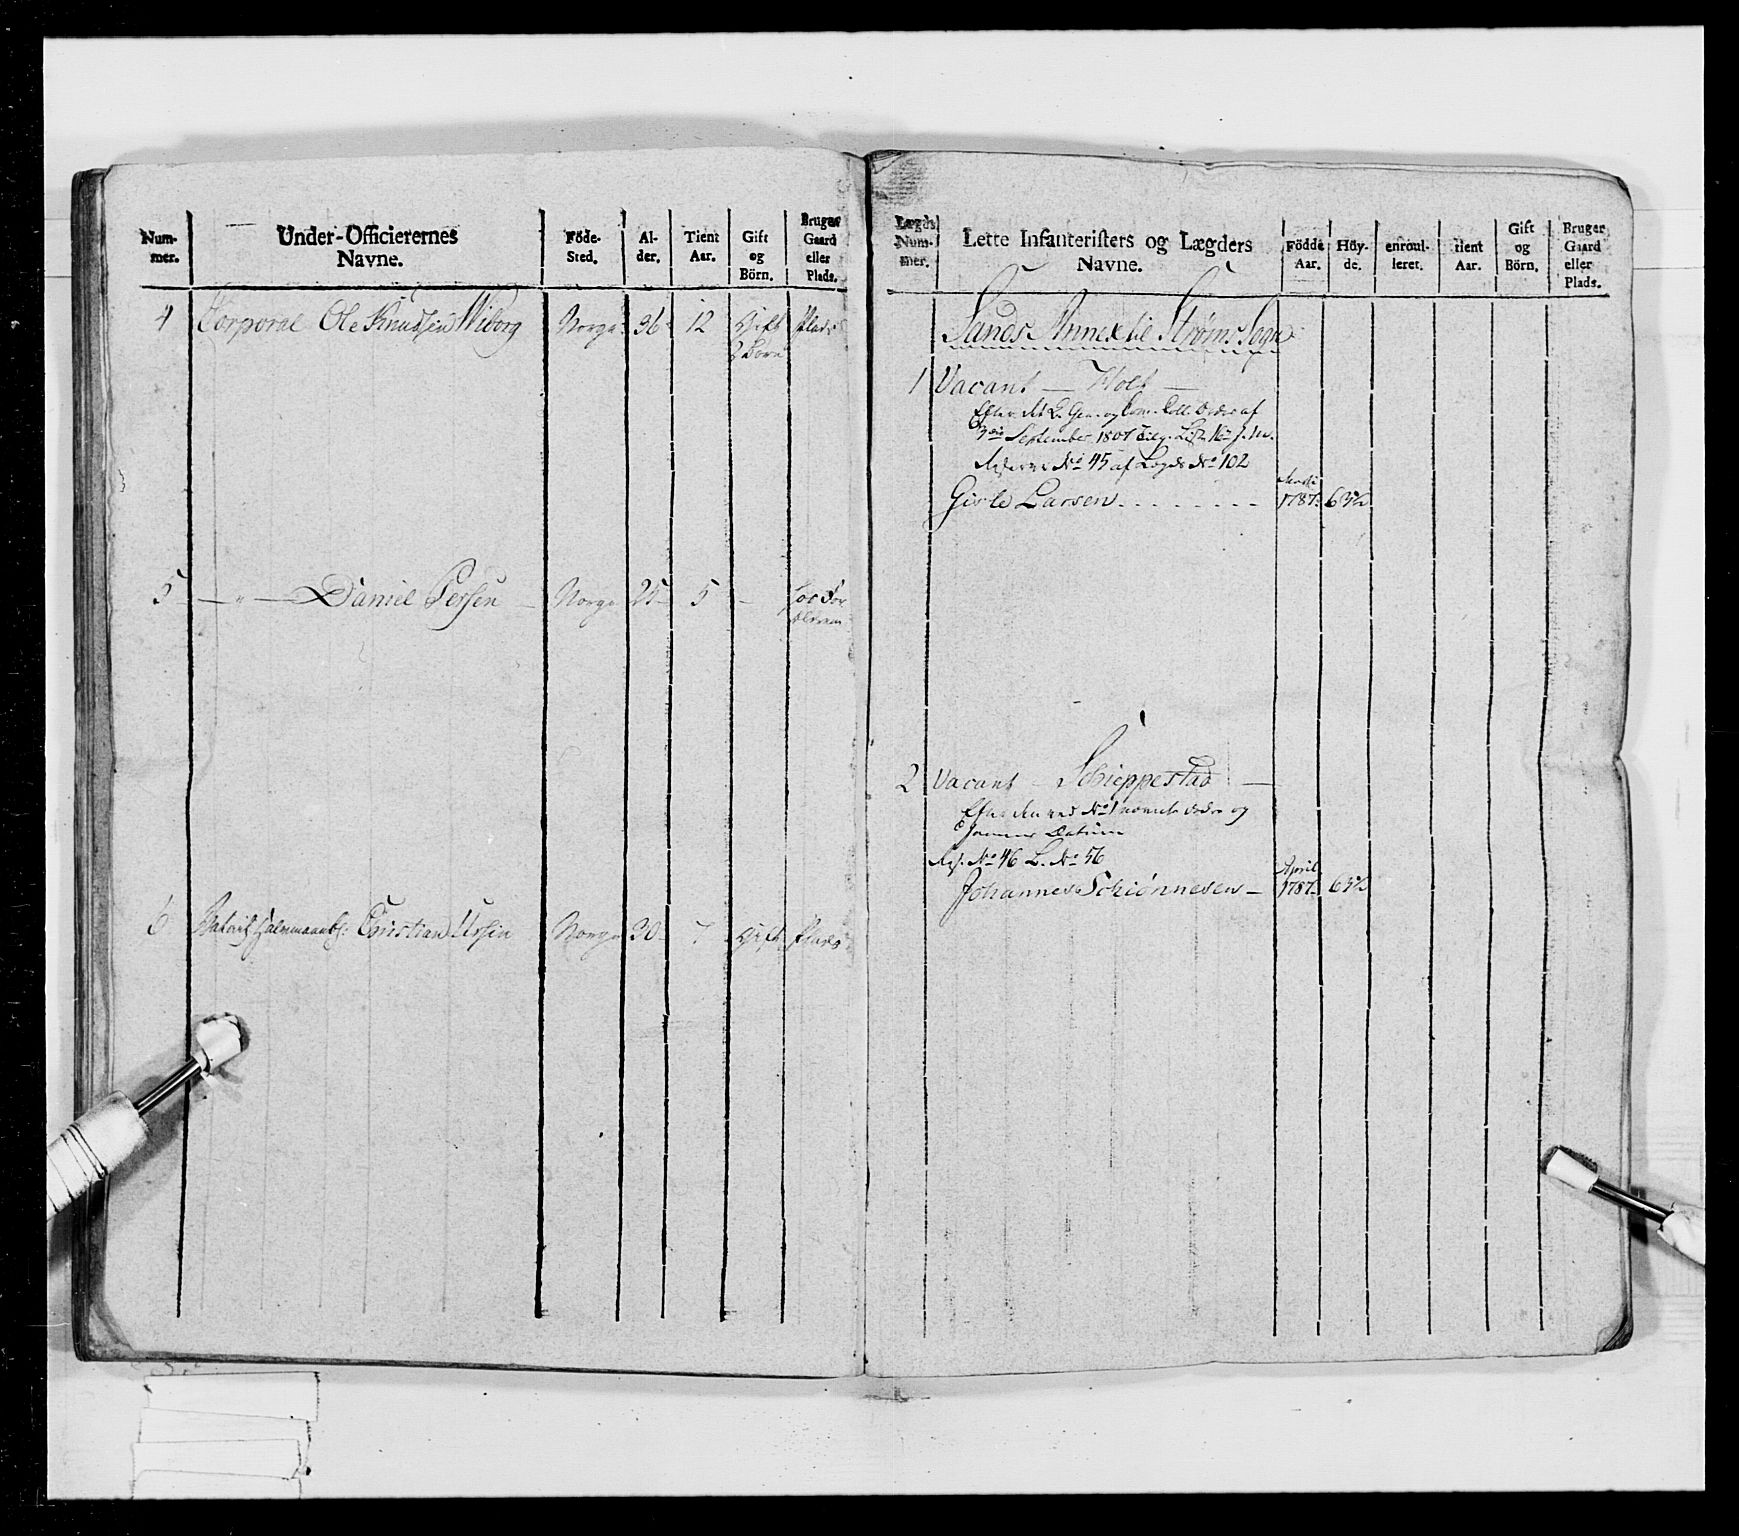 Num-
mer.
Under-Officierernes
Navne.
Föde-
Sted.
Al-
der.
Tient
Aar.
Gift
og
Börn.
Bruger
Gaard
eller
Plads.
4 Corporal Ole Knudsen Wiborg Norge 36 12 Gift Plads
2 Börn
5 — " — Daniel Persen — Norge 25 5 - hos For
ældrene
6 Christian Norge 30 7 Gift Plads
Lægds
Num-
mer.
Lette Infanteristers og Lægders
Navne.
Födde
Aar.
Höy-
de.
enroul-
leret.
tient
Aar.
Gift
og
Börn.
Bruger
Gaard
eller
Plads.
Sands Annex til Strøms Sogn
1 Vacant — Holt —
Efter og Coll. Ordre af
September 1807
No 45 af Lægds No 102
Gisle Larsen - - - - - - - - 1787. 63½
2 Vacant — Schieppestad —
Efter den ved No 1 Ordre og
Datum
No 46 L. No 56
April
Johannes Schiønnesen — 1787. 63½